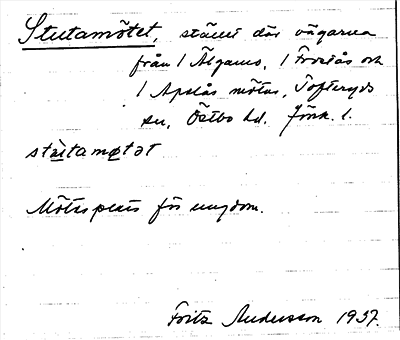 Stutamötet, stället där vägarna
från 1 Älganäs, 1 Frostås och
1 Apelås mötas, Tofteryds
sn, Östbo hd. Jönk. l.
stùtamøtət
Mötesplats för ungdom.
Fritz Andersson 1937.